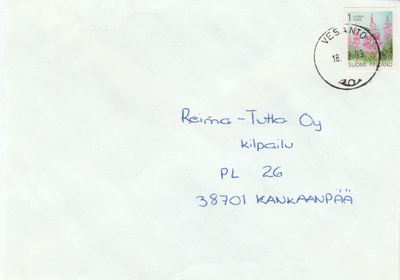 1
VESANTO
18.
93
SUOMI FINLAND
Reima-Tutta Oy
kilpailu
PL 26
38701 KANKAANPÄÄ